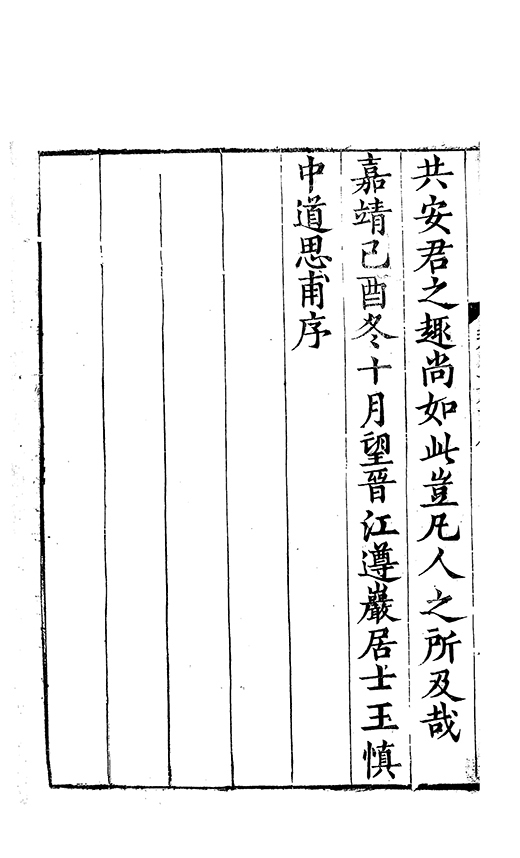 共安君之趣尚如此豈凡人之所及哉
嘉靖己酉冬十月望晉江遵巖居士王慎
中道思甫序